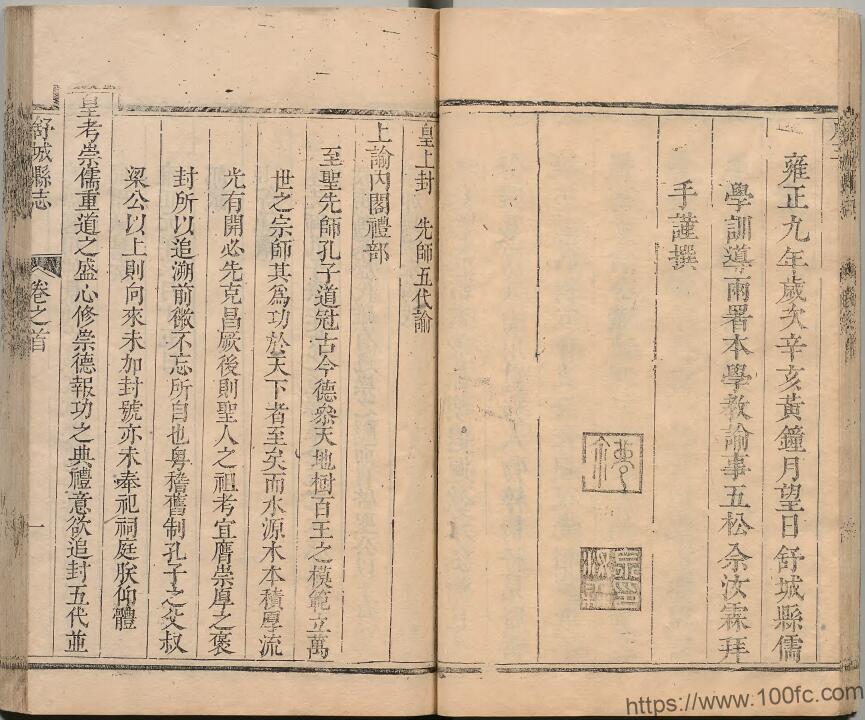 雍正九年歲次辛亥黃鐘月望日舒城縣儒
學訓導兩署本學教諭事五松佘汝霖拜
手謹撰
皇上封　先師五代諭
上諭內閣禮部
至聖先師孔子道冠古今德叅天地樹百王之模範立萬
世之宗師其爲功於天下者至矣而水源木本積厚流
光有開必先克昌厥後則聖人之祖考宜膺崇厚之褒
封所以追溯前徽不忘所自也粤稽舊制孔子之父叔
梁公以上則向來未加封號亦未奉祀祠庭朕仰體
皇考崇儒重道之盛心修崇德報功之典禮意欲追封五代並
舒城縣志
卷之首
一
https://www.100fc.com